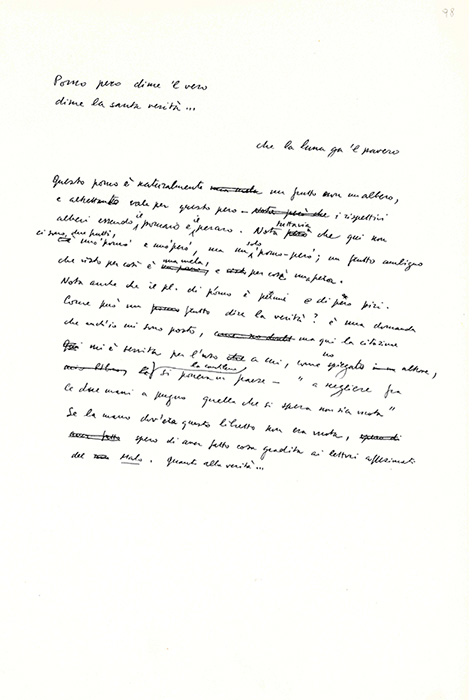 98
Pomo pero dime 'l vero
dime la santa verità...
che la luna ga 'l pavero
Questo pomo è naturalmente un frutto non un albero,
e altrettanto vale per questo pero – i rispettivi
alberi essendo il pomaro e il peraro. Nota tuttavia che qui non
ci sono due frutti, un 'pomo' e un 'pero', ma un solo 'pomo-pero'; un frutto ambiguo
che visto per così è una mela, e per cosà una pera.
Nota anche che il pl. di pómo è púmi e di péro píri.
Come può un frutto dire la verità? è una domanda
che anch'io mi sono posto, ma qui la citazione
mi è servita per l'uso a cui, come spiegato altrove,
si poneva in paese – "a scegliere fra
le due mani a pugno quella che si spera non sia vuota"
Se la mano dov'era questo libretto non era vuota,
spero di aver fatto cosa gradita ai lettori affezionati
del Malo. Quanto alla verità...